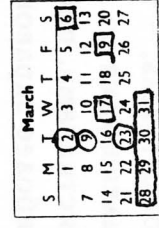 March
S M T W T F S
1 2 3 4 5 6
7 8 9 10 11 12 13
14 15 16 17 18 19 20
21 22 23 24 25 26 27
28 29 30 31